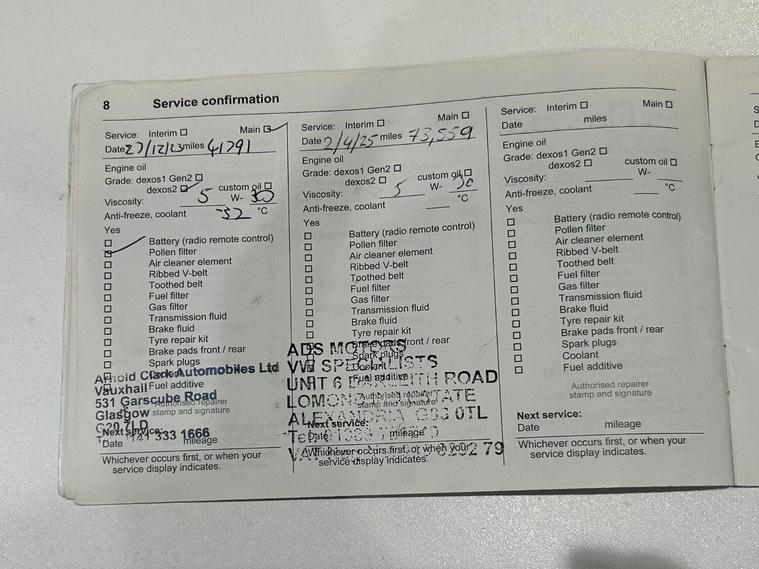 8 Service confirmation
Service: Interim Main
Date 27/12/23 miles 41791
Engine oil
Grade: dexos1 Gen2
dexos2 custom oil
Viscosity: 5 W- 30
Anti-freeze, coolant -32 °C
Yes
Battery (radio remote control)
Pollen filter
Air cleaner element
Ribbed V-belt
Toothed belt
Fuel filter
Gas filter
Transmission fluid
Brake fluid
Tyre repair kit
Brake pads front / rear
Spark plugs
Fuel additive
Arnold Clark Automobiles Ltd
Vauxhall
531 Garscube Road
Glasgow
G20 7LD
333 1666
Authorised repairer
stamp and signature
Next service:
Date mileage
Whichever occurs first, or when your
service display indicates.
Service: Interim Main
Date 2/4/25 miles 73,559
Engine oil
Grade: dexos1 Gen2
dexos2 custom oil
Viscosity: 5 W- 30
Anti-freeze, coolant °C
Yes
Battery (radio remote control)
Pollen filter
Air cleaner element
Ribbed V-belt
Toothed belt
Fuel filter
Gas filter
Transmission fluid
Brake fluid
Tyre repair kit
Brake pads front / rear
Spark plugs
Coolant
Fuel additive
ADS MOTORS
VW SPECIALISTS
UNIT 6 ROAD
LOMOND ESTATE
ALEXANDRIA G83 0TL
Tel:
79
Authorised repairer
stamp and signature
Next service:
Date mileage
Whichever occurs first, or when your
service display indicates.
Service: Interim Main
Date miles
Engine oil
Grade: dexos1 Gen2
dexos2 custom oil
Viscosity: W-
Anti-freeze, coolant °C
Yes
Battery (radio remote control)
Pollen filter
Air cleaner element
Ribbed V-belt
Toothed belt
Fuel filter
Gas filter
Transmission fluid
Brake fluid
Tyre repair kit
Brake pads front / rear
Spark plugs
Coolant
Fuel additive
Authorised repairer
stamp and signature
Next service:
Date mileage
Whichever occurs first, or when your
service display indicates.